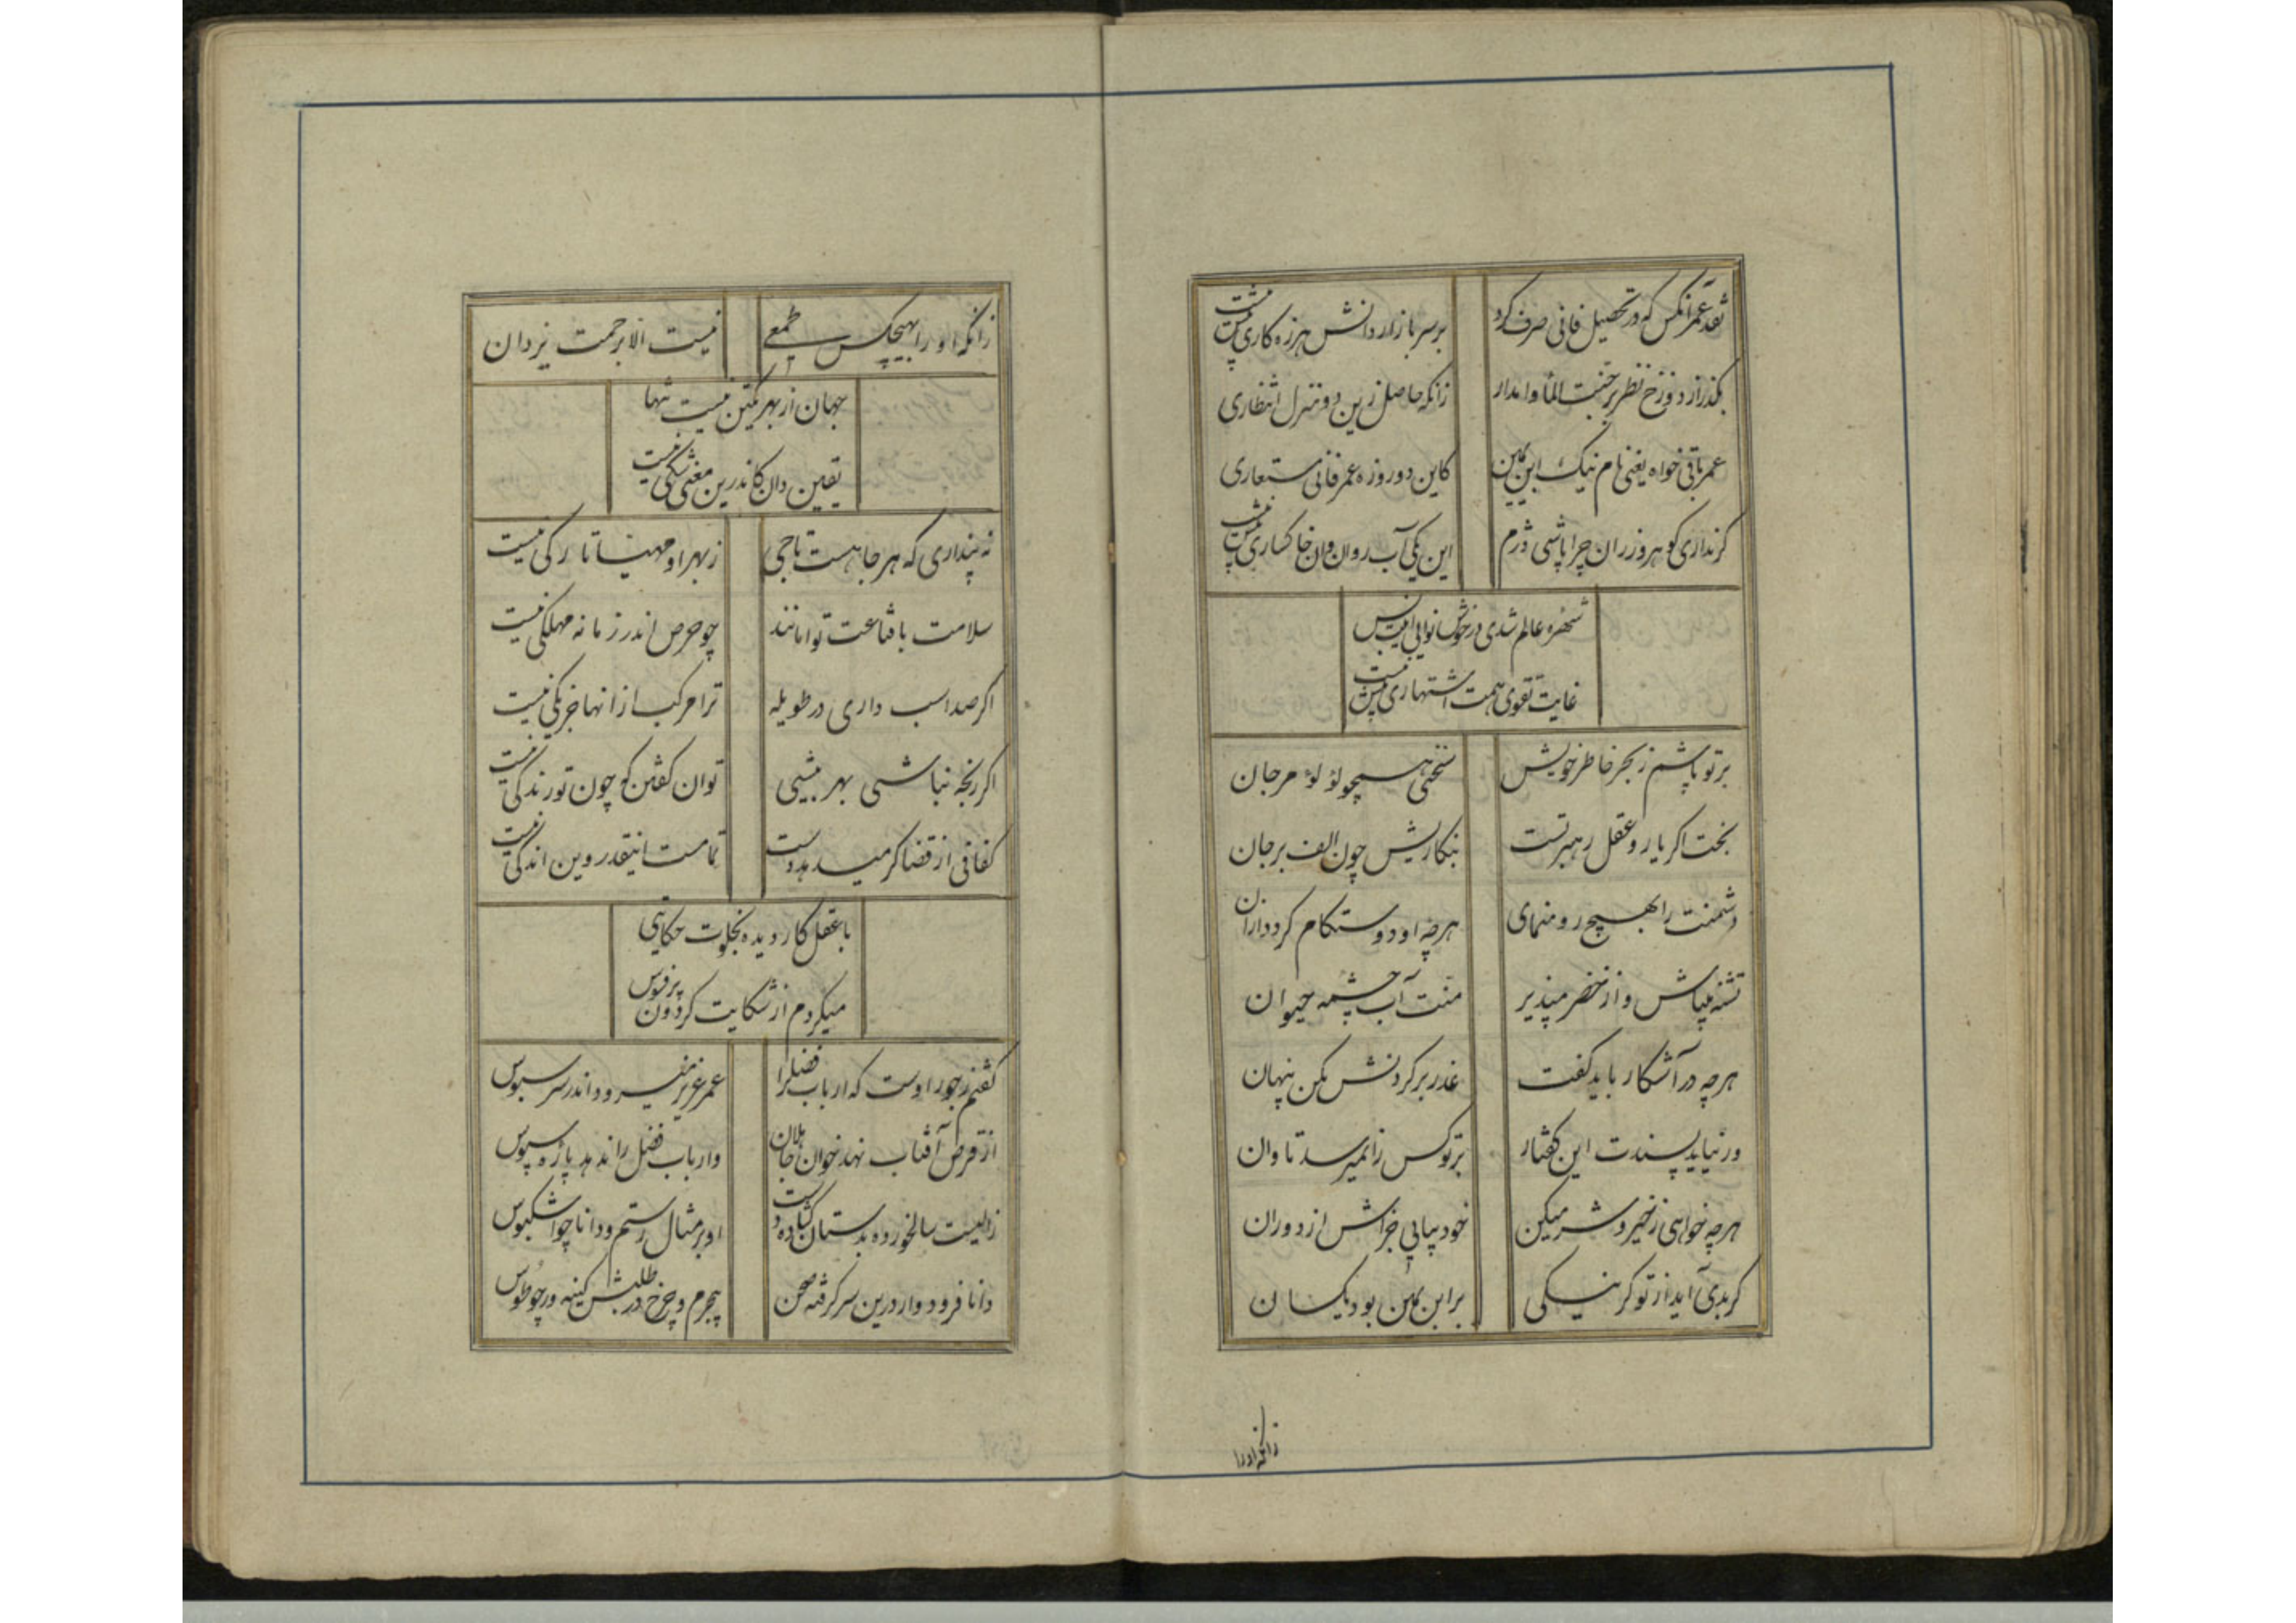 نقد عمر آنکس که در تحصیل فانی صرف کرد بر سر بازار دانش هرزه کاری بیش نیست
بگذر از دوزخ نظر بر جنت المأوا مدار زانکه حاصل زین دو منزل انتظاری
عمر باقی خواه یعنی نام نیک ابن یمین کاین دو روزه عمر فانی مستعاری
گر نداری گوهر و زر زان چرا باشی دژم این یکی آب روان وان خاکساری بیش نیست
شهره عالم شدی در خوش نوایی
غایت تقوی همت اشتهاری بیش نیست
بر تو پاشم ز بحر خاطر خویش سخنی همچو لؤلؤ مرجان
بخت اگر یار و عقل رهبر تست بنگاریش چون الف بر جان
دشمنت را بهیچ رو منمای هرچه او دوستکام گردد از آن
تشنه میباش و از خضر مپذیر منت آب چشمه حیوان
هرچه در آشکار باید گفت غدر بر کردنش مکن پنهان
ور نیاید پسندت این گفتار بر تو کس را نمیرسد تاوان
هرچه خواهی ز خیر و شر میکن خود بیابی جزاش از دوران
گر بدی آید از تو گر نیکی بر ابن یمین بود یکسان
زانکه او را
زانکه او را بهیچکس طمعی نیست الا برحمت یزدان
جهان از بهر یکتن نیست تنها
یقین دان کاندرین معنی شکی نیست
نه پنداری که هر جا هست تاجی ز بهر او مهیا تارکی نیست
سلامت با قناعت توامانند چو حرص اندر زمانه مهلکی نیست
اگر صد اسب داری در طویله ترا مرکب از انها جز یکی نیست
اگر رنجه نباشی بهر بیشی توان گفتن که چون تو زندکی نیست
کفافی از قضا گر میدهد دست تمامست اینقدر وین اندکی نیست
با عقل کار دیده بخلوت حکایتی
میکردم از شکایت گردون پر فسوس
گفتم ز جور اوست که ارباب فضل را عمر عزیز میرود اندر سر سبوس
از قرص آفتاب نهد خوان جاهلان و ارباب فضل را ندهد پاره سپوس
زالیست سالخورده بدستان گشاده دست او بر مثال رستم و دانا چو اشکبوس
دانا فرود وار درین سر گرفته صحن بیجرم و چرخ در طلبش کینه ور چو طوس